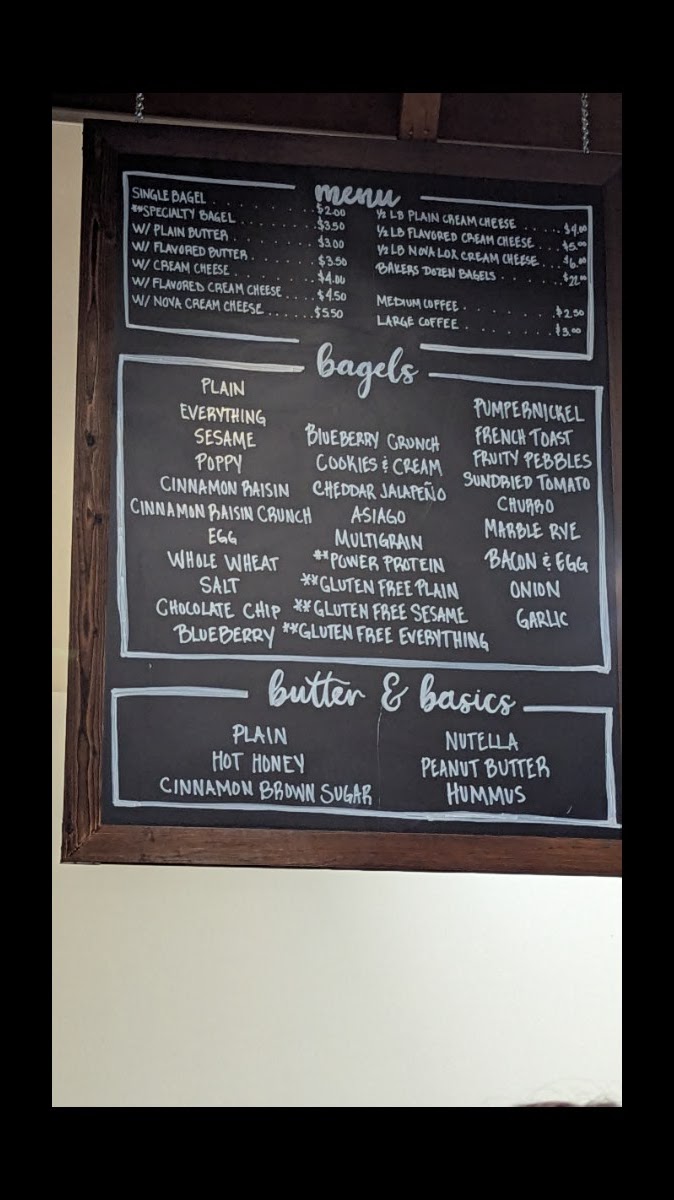 menu
SINGLE BAGEL . . . . . . . . . . $2.00
**SPECIALTY BAGEL . . . . . . . $3.50
W/ PLAIN BUTTER . . . . . . . . $3.00
W/ FLAVORED BUTTER . . . . . . $3.50
W/ CREAM CHEESE . . . . . . . . $4.00
W/ FLAVORED CREAM CHEESE . . . . $4.50
W/ NOVA CREAM CHEESE . . . . . . $5.50
1/2 LB PLAIN CREAM CHEESE . . . . . $4.00
1/2 LB FLAVORED CREAM CHEESE . . . $5.00
1/2 LB NOVA LOX CREAM CHEESE . . . $6.00
BAKERS DOZEN BAGELS . . . . . . .
MEDIUM COFFEE . . . . . . . . . $2.50
LARGE COFFEE . . . . . . . . . $3.00
bagels
PLAIN
EVERYTHING
SESAME
POPPY
CINNAMON RAISIN
CINNAMON RAISIN CRUNCH
EGG
WHOLE WHEAT
SALT
CHOCOLATE CHIP
BLUEBERRY
BLUEBERRY CRUNCH
COOKIES & CREAM
CHEDDAR JALAPEÑO
ASIAGO
MULTIGRAIN
**POWER PROTEIN
**GLUTEN FREE PLAIN
**GLUTEN FREE SESAME
**GLUTEN FREE EVERYTHING
PUMPERNICKEL
FRENCH TOAST
FRUITY PEBBLES
SUNDRIED TOMATO
CHURRO
MARBLE RYE
BACON & EGG
ONION
GARLIC
butter & basics
PLAIN
HOT HONEY
CINNAMON BROWN SUGAR
NUTELLA
PEANUT BUTTER
HUMMUS